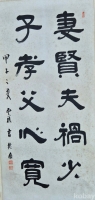 妻賢夫禍少
子孝父心寬
甲子之夏